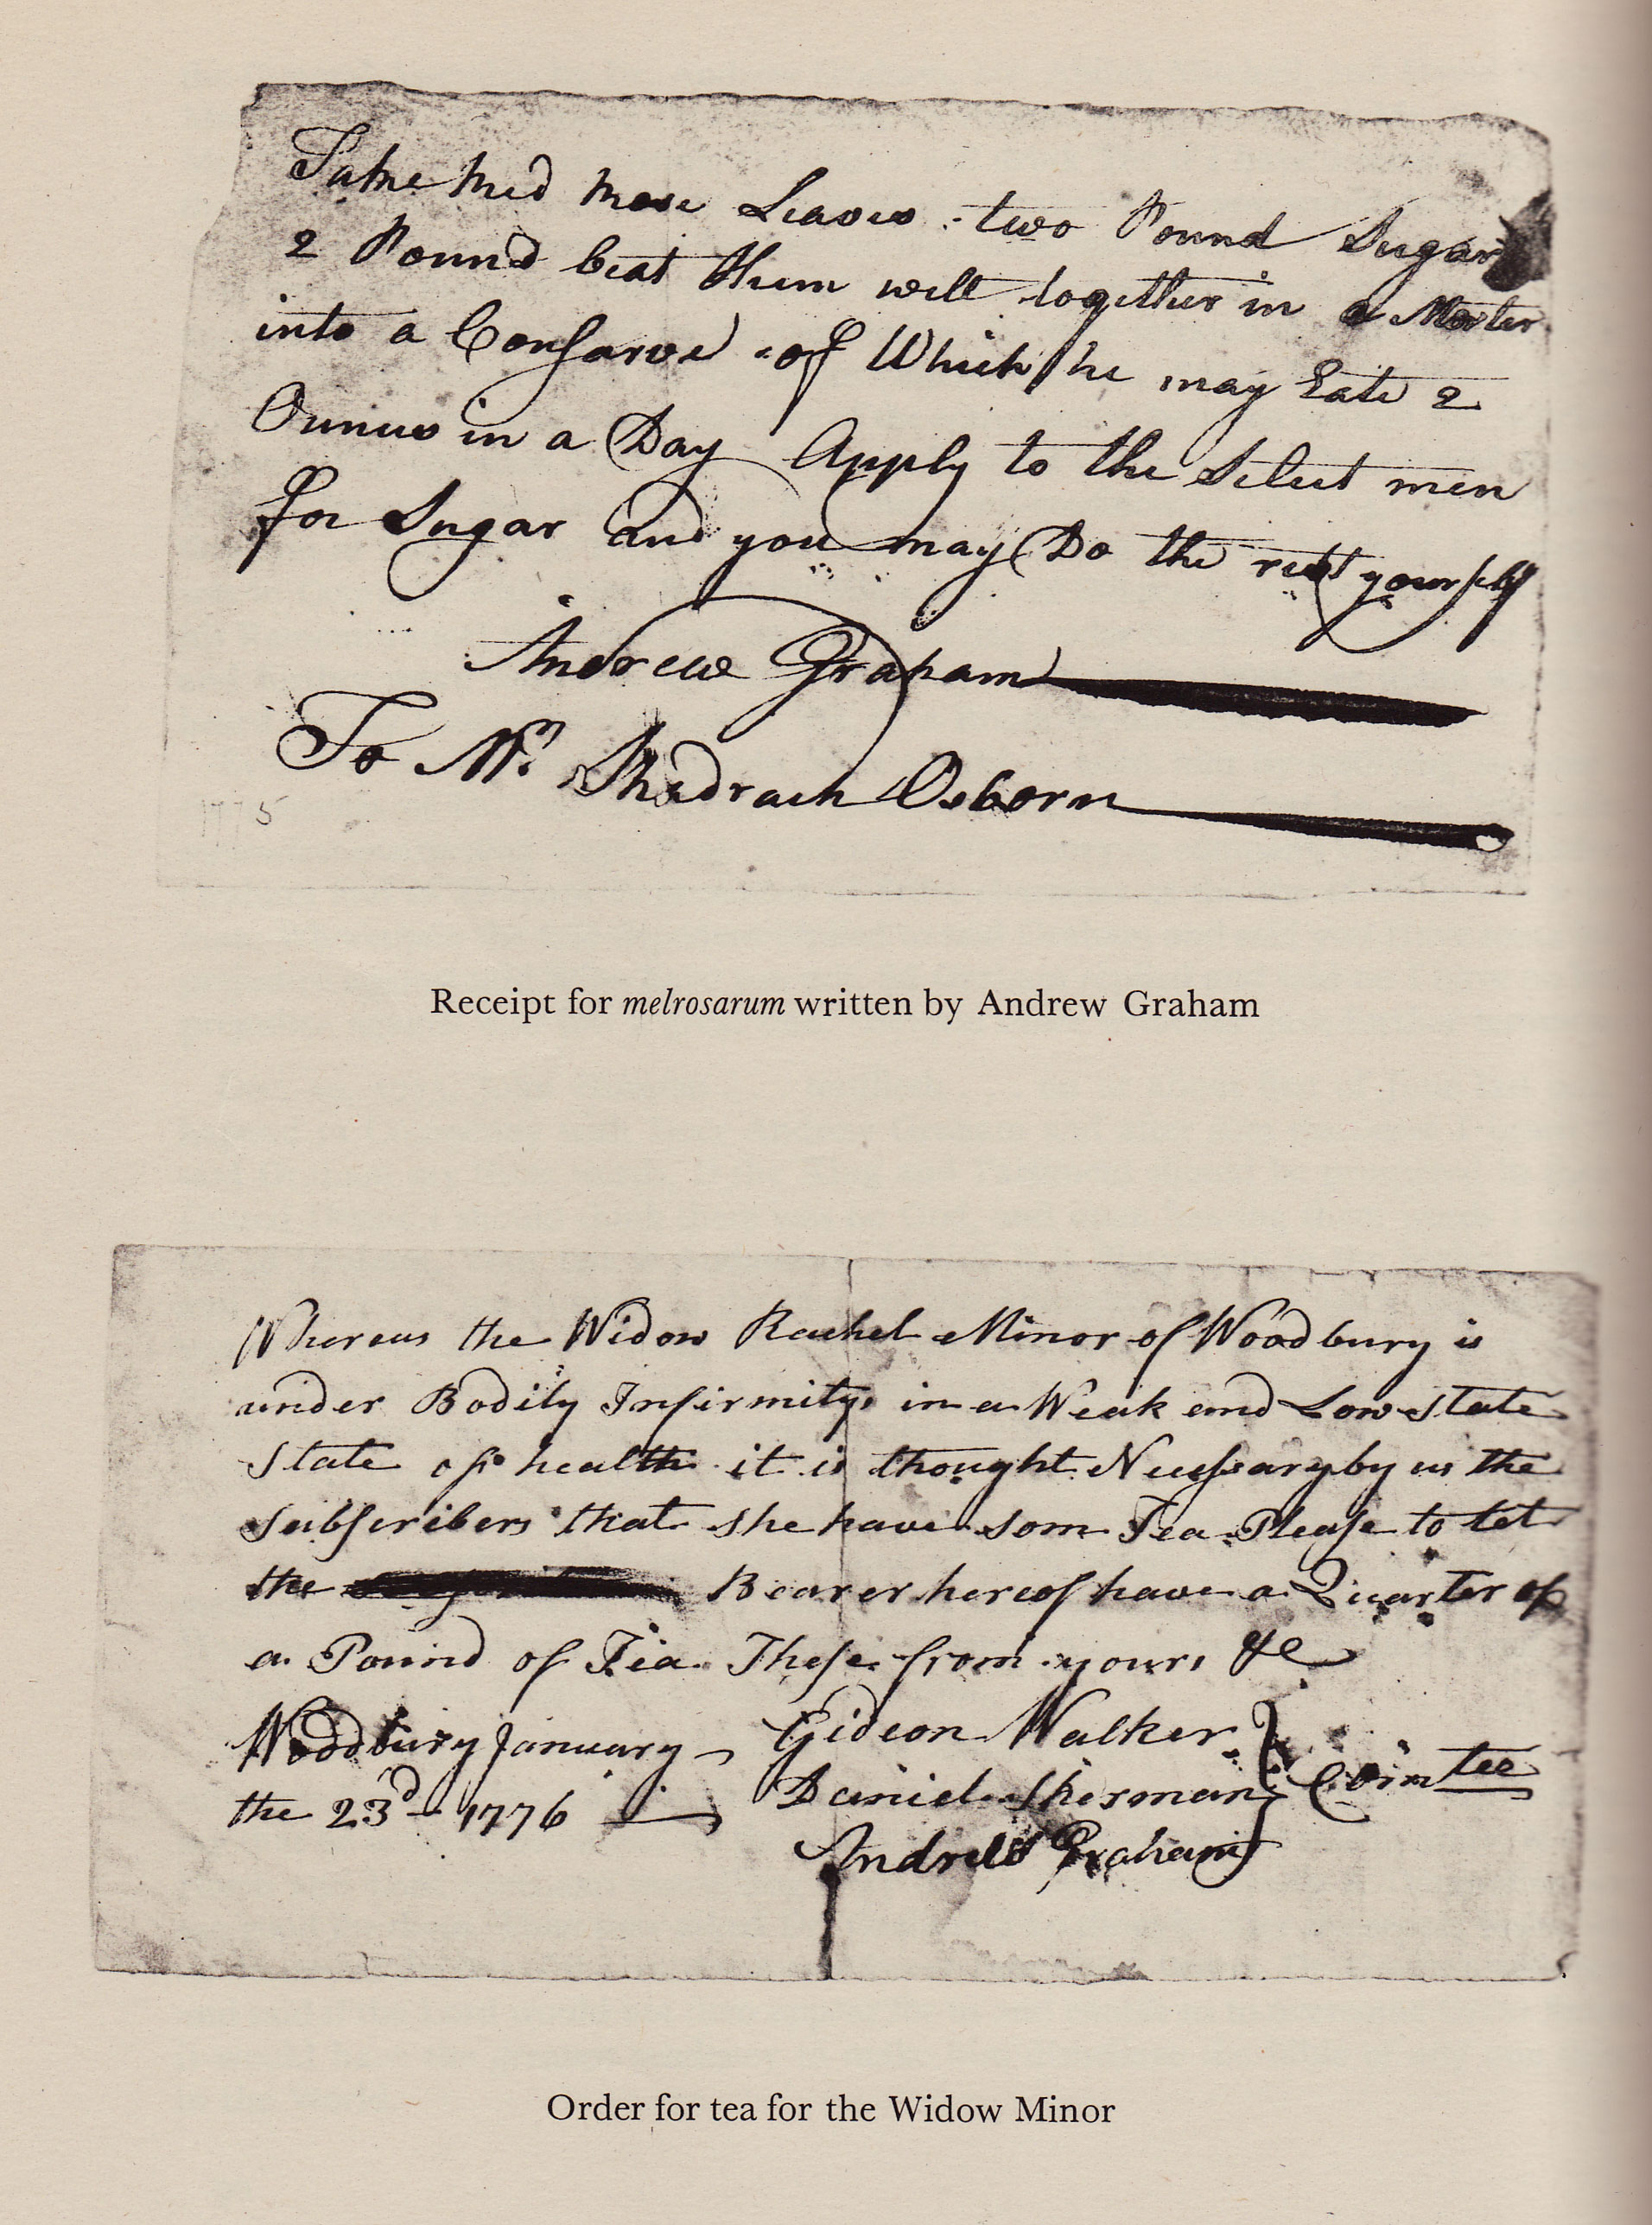 Take Red Rose Leaves two Pound Sugar
2 Pound beat them well together in a Morter
into a Consarve of Which he may Eate 2
Ounces in a Day Apply to the Select men
for Sugar and you may Do the rest yourself
Andrew Graham
To Mr Shedrach Osborn
1775
Receipt for melrosarum written by Andrew Graham
Whereas the Widow Rachel Minor of Woodbury is
under Bodily Infirmity in a Weak and Low state
state of health it is thought Necessary by us the
subscribers that she have som Tea Please to let
the Bearer hereof have a Quarter of
a Pound of Tea These from yours &c
Woodbury January Gideon Walker
the 23d 1776 Daniel Sherman Comtee
Andrew Graham
Order for tea for the Widow Minor